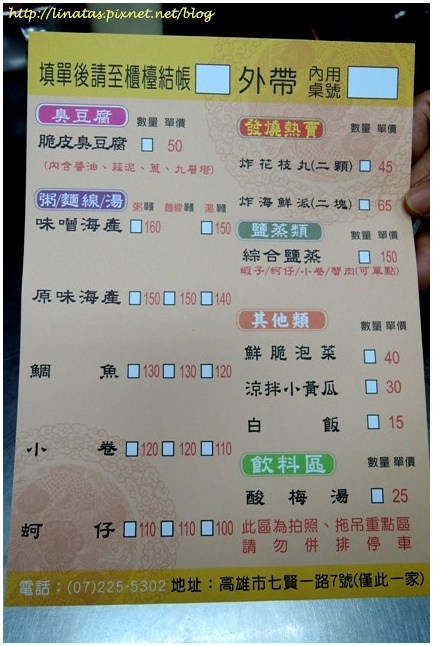 http://linatas.pixnet.net/blog
填單後請至櫃檯結帳 外帶 內用桌號
臭豆腐 數量 單價
脆皮臭豆腐 50
(內含醬油、蒜泥、蔥、九層塔)
粥/麵線/湯 粥類 麵線類 湯類
味噌海產 160 150
原味海產 150 150 140
鯛魚 130 130 120
小卷 120 120 110
蚵仔 110 110 100
發燒熱賣 數量 單價
炸花枝丸(二顆) 45
炸海鮮派(二塊) 65
鹽蒸類 數量 單價
綜合鹽蒸 150
蝦子/蚵仔/小卷/蟹肉(可單點)
其他類 數量 單價
鮮脆泡菜 40
涼拌小黃瓜 30
白飯 15
飲料區 數量 單價
酸梅湯 25
此區為拍照、拖吊重點區
請勿併排停車
電話：(07)225-5302 地址：高雄市七賢一路7號(僅此一家)